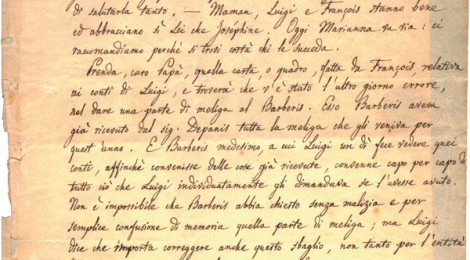 di salutarla tanto. — Maman, Luigi e François stanno bene
ed abbracciano sì Lei che Joséphine. Oggi Marianna va via: ci
racomandiamo perché si trovi costà chi le succeda.
Prenda, caro Papà, quella carta, o quadro, fatta da François, relativa
ai conti di Luigi, e troverà che v'è stato l'altro giorno errore,
nel dare una parte di meliga al Barberis. Esso Barberis aveva
già ricevuto dal sig. Depanis tutta la meliga che gli veniva per
quest'anno. E Barberis medesimo, a cui Luigi un dì fece vedere quei
conti, affinché convenisse delle cose già ricevute, convenne capo per capo di
tutto ciò che Luigi individualmente gli dimandava se l'avesse avuto.
Non è impossibile che Barberis abbia chiesto senza malizia e per
semplice confusione di memoria quella parte di meliga; ma Luigi
dice che importa correggere anche questo sbaglio, non tanto per l'entità